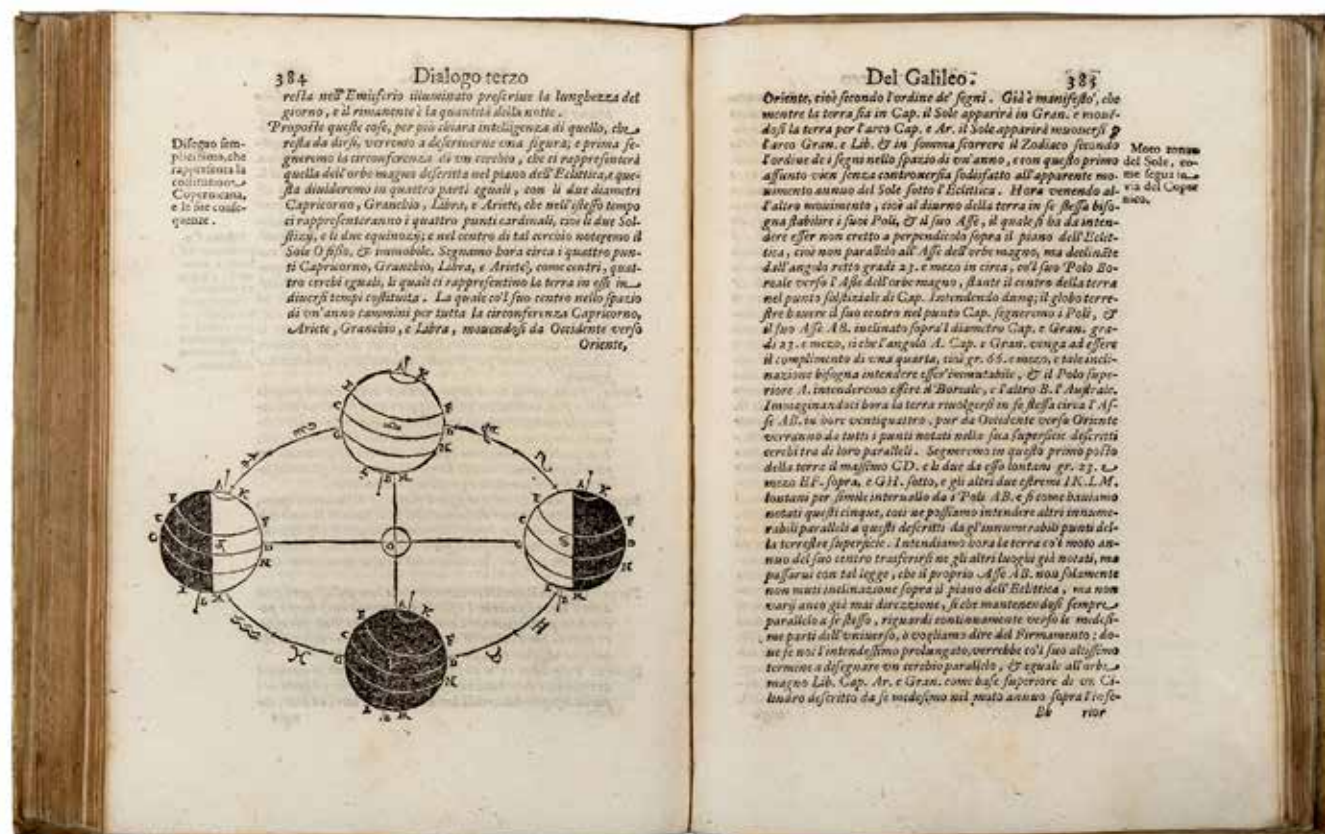 384 Dialogo terzo
resta nell'Emisferio illuminato prescriue la lunghezza del
giorno, e il rimanente è la quantità della notte.
Proposte queste cose, per più chiara intelligenza di quello, che
resta da dirsi, verremo a descriuerne vna figura; e prima se-
gneremo la circonferenza di vn cerchio, che ci rappresenterà
quella dell'orbe magno descritta nel piano dell'Eclittica, e que-
sta diuideremo in quattro parti eguali, con li due diametri
Capricorno, Granchio, Libra, e Ariete, che nell'istesso tempo
ci rappresenteranno i quattro punti cardinali, cioè li due Sol-
stizij, e li due equinozij; e nel centro di tal cerchio noteremo il
Sole O fisso, & immobile. Segnamo hora circa i quattro pun-
ti Capricorno, Granchio, Libra, e Ariete, come centri, quat-
tro cerchi eguali, li quali ci rappresentino la terra in essi in
diuersi tempi costituita. La quale co'l suo centro nello spazio
di vn'anno cammini per tutta la circonferenza Capricorno,
Ariete, Granchio, e Libra, mouendosi da Occidente verso
Oriente,
Disegno sem-
plicissimo, che
rappresenta la
costituzione
Copernicana,
e le sue conse-
guenze.
Del Galileo. 385
Oriente, cioè secondo l'ordine de' segni. Già è manifesto, che
mentre la terra sia in Cap. il Sole apparirà in Gran. e mouen-
dosi la terra per l'arco Cap. e Ar. il Sole apparirà muouersi p
l'arco Gran. e Lib. & in somma scorrere il Zodiaco secondo
l'ordine de i segni nello spazio di vn'anno, e con questo primo
assunto vien senza controuersia sodisfatto all'apparente mo-
uimento annuo del Sole sotto l'Eclittica. Hora venendo al-
l'altro mouimento, cioè al diurno della terra in se stessa biso-
gna stabilire i suoi Poli, & il suo Asse, il quale si ha da inten-
dere esser non eretto a perpendicolo sopra il piano dell'Eclit-
tica, cioè non parallelo all'Asse dell'orbe magno, ma declinãte
dall'angolo retto gradi 23. e mezo in circa, co'l suo Polo Bo-
reale verso l'Asse dell'orbe magno, stante il centro della terra
nel punto solstiziale di Cap. Intendendo dunq; il globo terre-
stre hauere il suo centro nel punto Cap. segneremo i Poli, &
il suo Asse AB. inclinato sopra'l diametro Cap. e Gran. gra-
di 23. e mezo, sì che l'angolo A. Cap. e Gran. venga ad essere
il complimento di vna quarta, cioè gr. 66. e mezo, e tale incli-
nazione bisogna intendere esser'immutabile, & il Polo supe-
riore A. intenderemo essere il Boreale, e l'altro B. l'Australe.
Immaginandoci hora la terra riuolgersi in se stessa circa l'As-
se AB. in hore ventiquattro, pur da Occidente verso Oriente
verranno da tutti i punti notati nella sua superficie descritti
cerchi tra di loro paralleli. Segneremo in questo primo posto
della terra il massimo CD. e li due da esso lontani gr. 23. e
mezo EF. sopra, e GH. sotto, e gli altri due estremi IK. L.M.
lontani per simile interuallo da i Poli AB. e si come hauiamo
notati questi cinque, così ne possiamo intendere altri innume-
rabili paralleli a questi descritti da gl'innumerabili punti del-
la terrestre superficie. Intendiamo hora la terra co'l moto an-
nuo del suo centro trasferirsi ne gli altri luoghi già notati, ma
passarui con tal legge, che il proprio Asse AB. non solamente
non muti inclinazione sopra il piano dell'Eclittica, ma non
varij anco già mai direzzione, sì che mantenendosi sempre
parallelo a se stesso, riguardi continuamente verso le medesi-
me parti dell'vniuerso, ò vogliamo dire del Firmamento; do-
ue se noi l'intendessimo prolungato, verrebbe co'l suo altissimo
termine a disegnare vn cerchio parallelo, & eguale all'orbe
magno Lib. Cap. Ar. e Gran. come base superiore di vn Ci-
lindro descritto da se medesimo nel moto annuo sopra l'infe-
Bb rior
del Sole, co-
me segua in
via del Coper
nico.